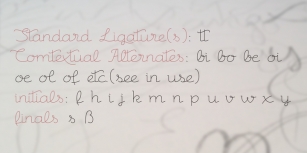 Standard Ligature(s): tt
Contextual Alternates: bi bo be oi
oe ol of etc (see in use)
initials: f h i j k m n p u v w x y
finals s ß